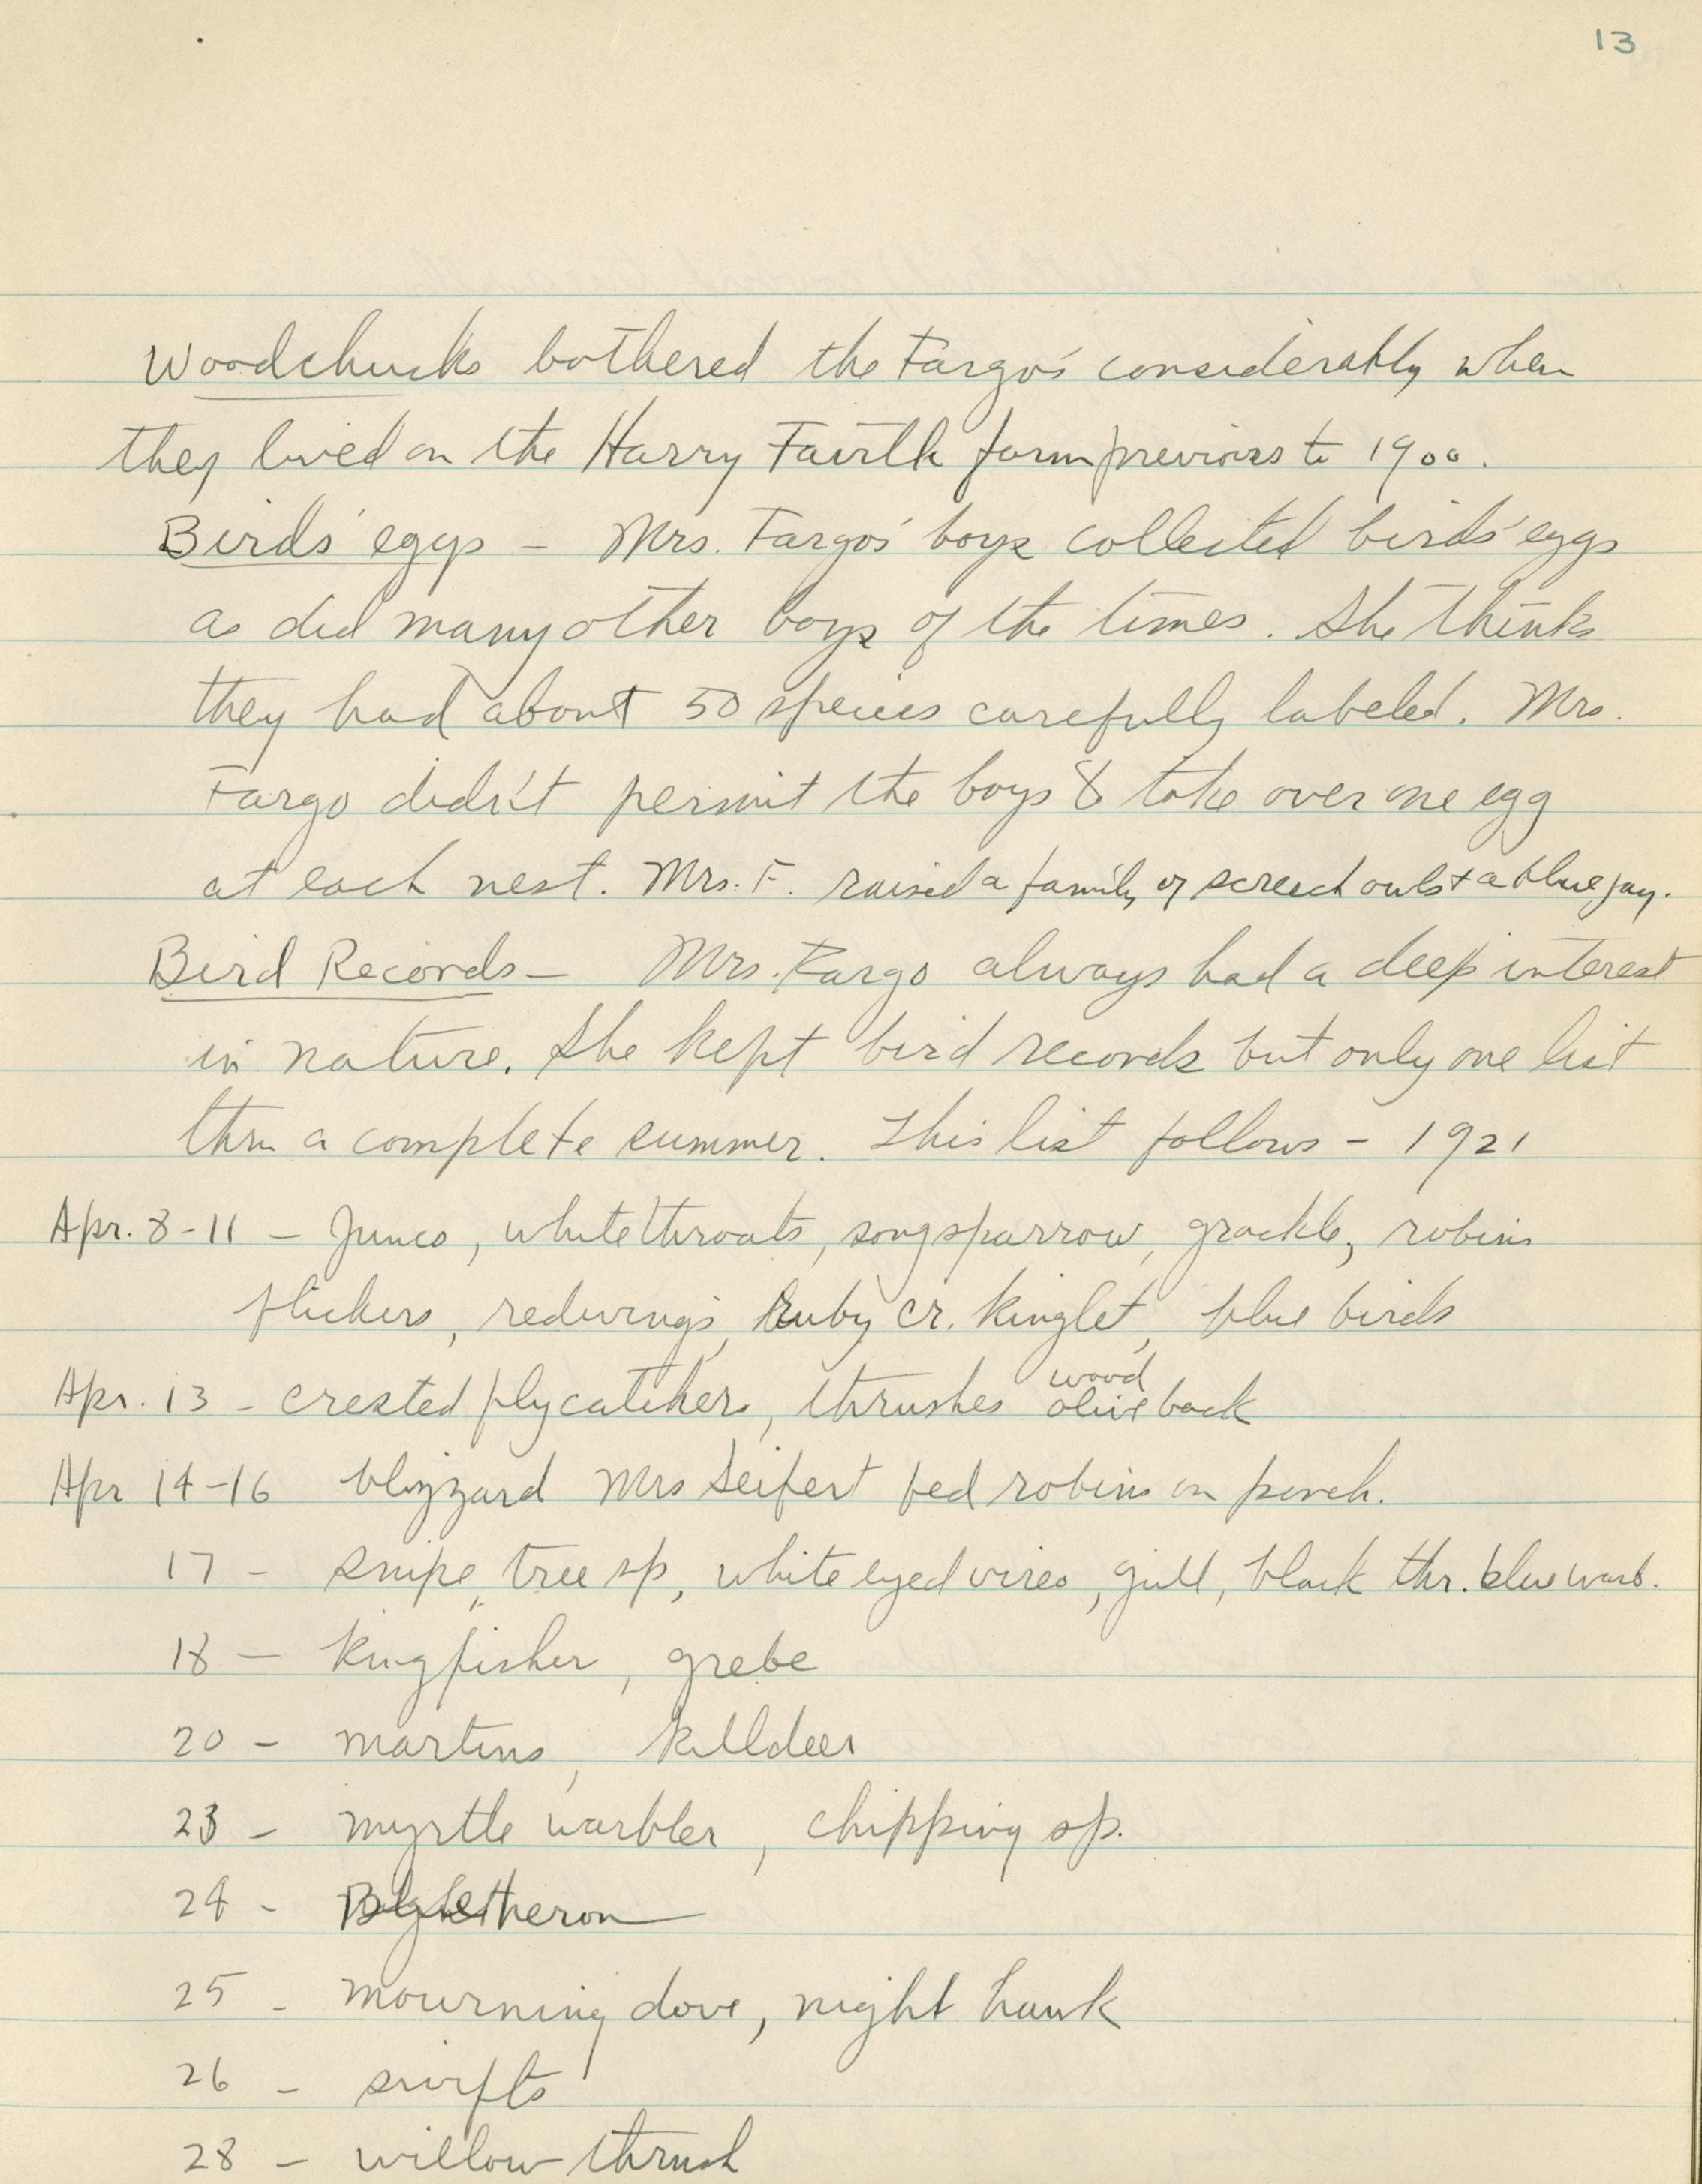 13
Woodchucks bothered the Fargo's considerably when
they lived on the Harry farm previous to 1900.
Birds' eggs - Mrs. Fargo's boys collected birds' eggs
as did many other boys of the times. She thinks
they had about 50 species carefully labeled. Mrs.
Fargo didn't permit the boys to take over one egg
at each nest. Mrs. F. raised a family of screech owls + a blue jay.
Bird Records - Mrs. Fargo always had a deep interest
in nature. She kept bird records but only one list
thru a complete summer. This list follows - 1921
Apr. 8-11 - Junco, whitethroats, song sparrow, grackle, robins
flickers, redwings, Ruby cr. kinglet, blue birds
wood
Apr. 13 - crested flycatchers, thrushes oliveback
Apr 14-16 blizzard Mrs Seifert fed robins on porch.
17 - snipe, tree sp, white eyed vireo, gull, black thr. blue warb.
18 - kingfisher, grebe
20 - martins, killdeer
23 - myrtle warbler, chipping sp.
24 - heron
25 - mourning dove, night hawk
26 - swifts
28 - willow thrush